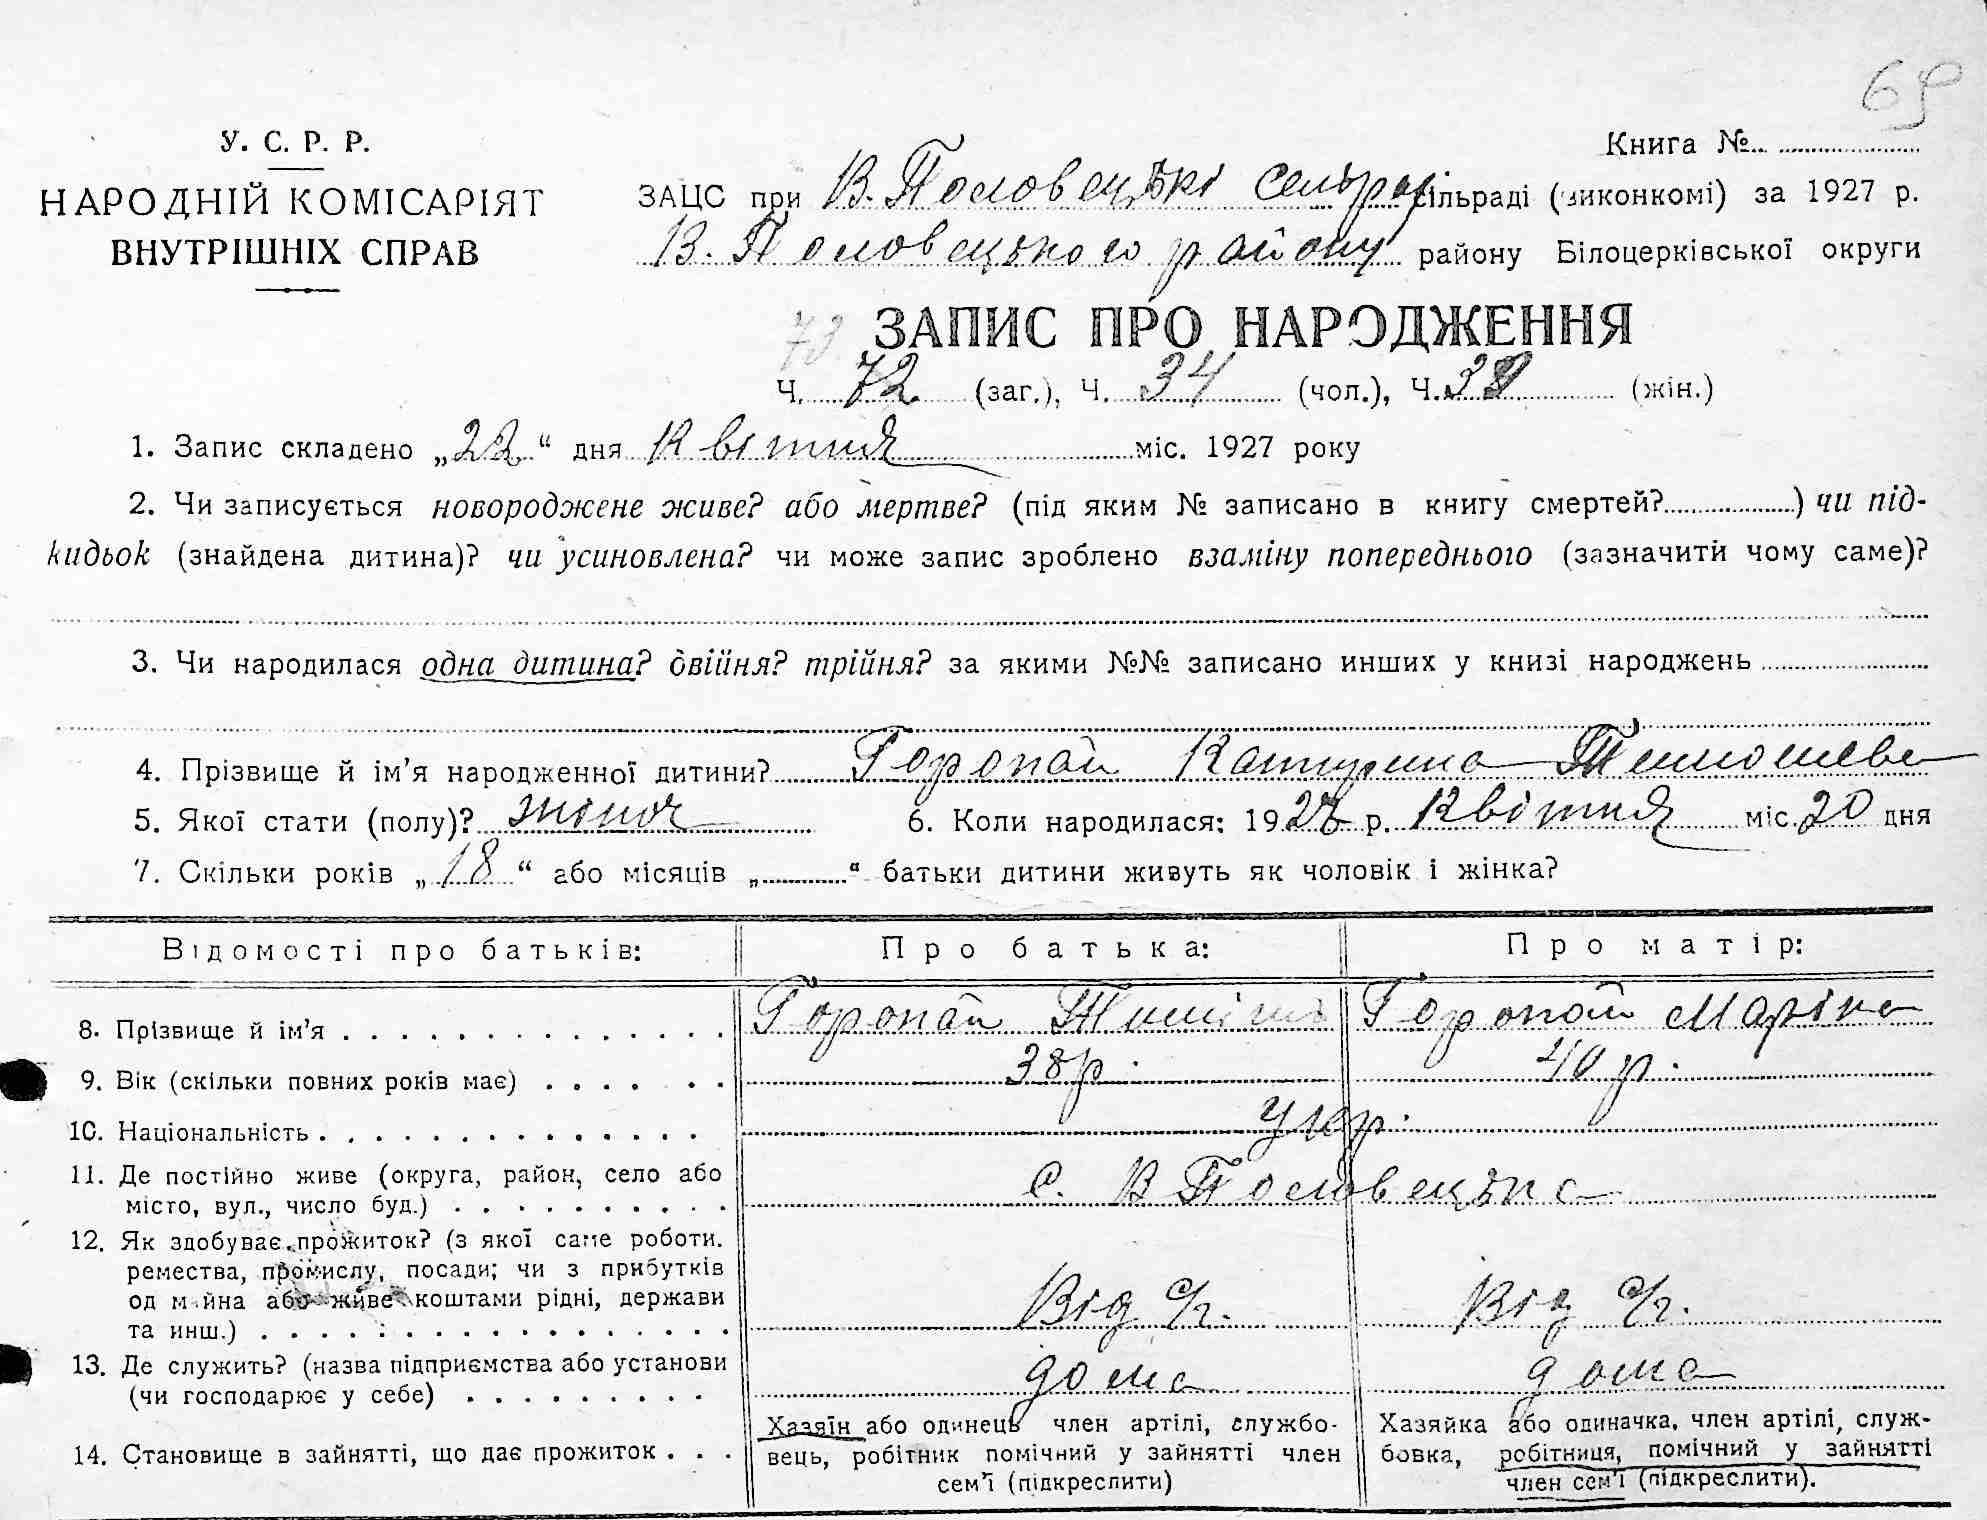 69
У. С. Р. Р.
НАРОДНІЙ КОМІСАРІЯТ
ВНУТРІШНІХ СПРАВ
Книга №
ЗАЦС при В. Половецькі сельраї сільраді (виконкомі) за 1927 р.
В. Половецького району району Білоцерківської округи
73 ЗАПИС ПРО НАРОДЖЕННЯ
Ч. 72 (заг.), Ч. 34 (чол.), Ч. (жін.)
1. Запис складено „22“ дня Квітня міс. 1927 року
2. Чи записується новороджене живе? або мертве? (під яким № записано в книгу смертей?) чи під-
кидьок (знайдена дитина)? чи усиновлена? чи може запис зроблено взаміну попереднього (зазначити чому саме)?
3. Чи народилася одна дитина? двійня? трійня? за якими №№ записано инших у книзі народжень
4. Прізвище й ім’я народженної дитини? Горопай Катирина Тимошева
5. Якої стати (полу)? жіноч 6. Коли народилася: 1927 р. Квітня міс. 20 дня
7. Скільки років „18“ або місяців „“ батьки дитини живуть як чоловік і жінка?
Відомості про батьків: Про батька: Про матір:
8. Прізвище й ім’я Горопай Тиміш Горопай Маріна
9. Вік (скільки повних років має) 38 р. 40 р.
10. Національність укр.
11. Де постійно живе (округа, район, село або
місто, вул., число буд.) с. В Половецьке
12. Як здобуває прожиток? (з якої саме роботи.
ремества, промислу, посади; чи з прибутків
од майна або живе коштами рідні, держави
та инш.) Від с/г. Від с/г.
13. Де служить? (назва підприємства або установи
(чи господарює у себе) дома дома
14. Становище в зайнятті, що дає прожиток
Хазяїн або одинець член артілі, службо-
вець, робітник помічний у зайнятті член
сем’ї (підкреслити)
Хазяйка або одиначка, член артілі, служ-
бовка, робітниця, помічний у зайнятті
член сем’ї (підкреслити).